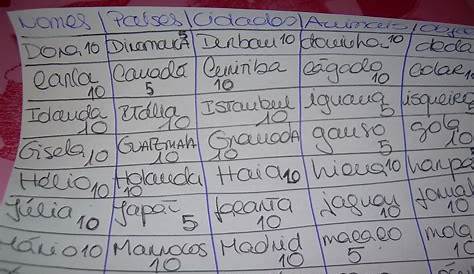 Nomes Países Cidades Animais
Dora 10 Dinamarca 5 Durban 10 doninha 10
Carla 10 Canadá 5 Curitiba 10 cágado 10
Iolanda 10 Itália 10 Istanbul 10 iguana 5 isqueiro
Gisela 10 Guatemala 10 Granada 10 ganso 5 gola 10
Hélio 10 Holanda 10 Haia 10 hiena 10 harpa
Júlia 10 Japão 5 Jacarta 10 jaguar 10
Mário 10 Marrocos 10 Madrid 10 macaco 5 mola